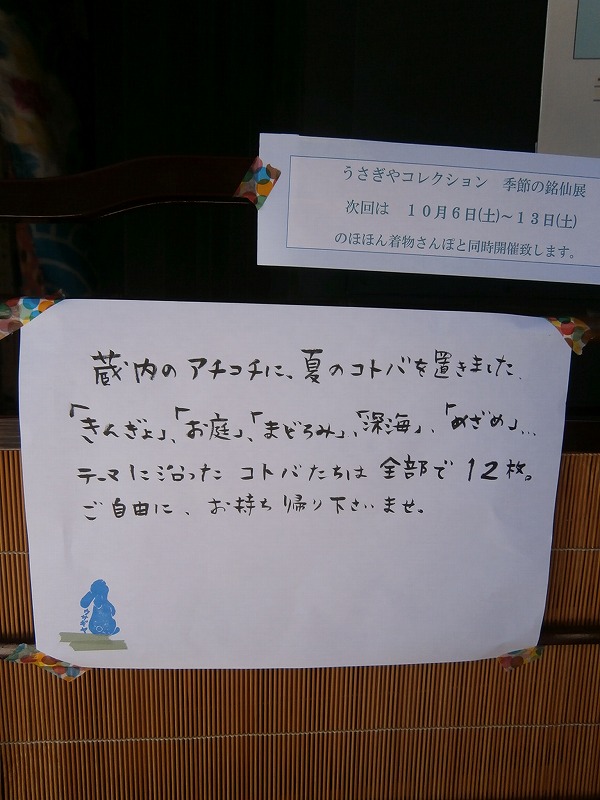 うさぎやコレクション　季節の銘仙展
次回は　１０月６日(土)～１３日(土)
のほほん着物さんぽと同時開催致します。
蔵内のアチコチに、夏のコトバを置きました。
「きんぎょ」、「お庭」、「まどろみ」、「深海」、「めざめ」…
テーマに沿った コトバたちは 全部で 12枚。
ご自由に、お持ち帰り下さいませ。
ウサギヤ